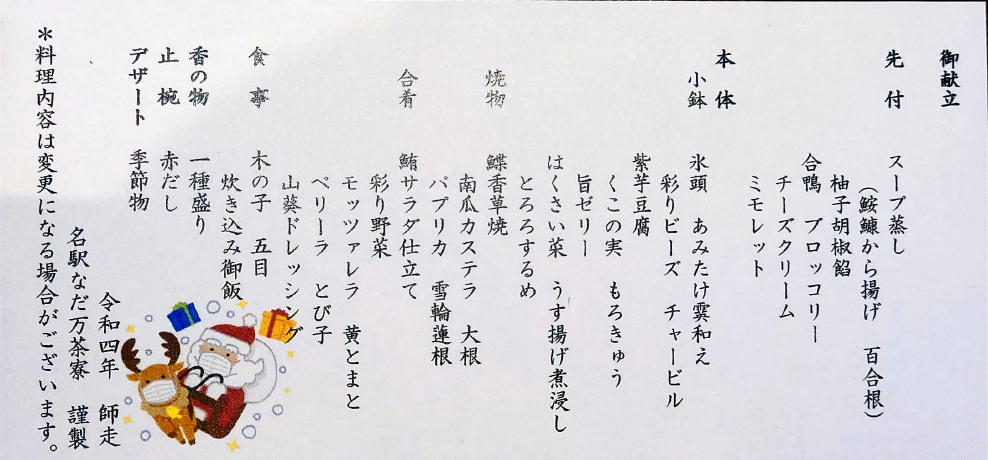 御献立
先付 スープ蒸し
（鮟鱇から揚げ 百合根）
柚子胡椒餡
合鴨 ブロッコリー
チーズクリーム
ミモレット
本体
小鉢 氷頭 あみたけ霙和え
彩りビーズ チャービル
紫芋豆腐
くこの実 もろきゅう
旨ゼリー
はくさい菜 うす揚げ煮浸し
とろろするめ
焼物 鰈香草焼
南瓜カステラ 大根
パプリカ 雪輪蓮根
合肴 鮪サラダ仕立て
彩り野菜
モッツァレラ 黄とまと
ペリーラ とび子
山葵ドレッシング
食事 木の子 五目
炊き込み御飯
香の物 一種盛り
止椀 赤だし
デザート 季節物
令和四年 師走
名駅なだ万茶寮 謹製
＊料理内容は変更になる場合がございます。